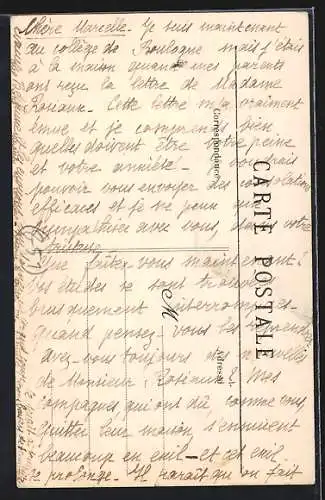 Chère Marcelle. Je suis maintenant
au collège de Boulogne mais j'étais
à la maison quand mes parents
ont reçu la lettre de Madame
Rosiaux. Cette lettre m'a vraiment
émue et je comprends bien
quelles doivent être votre peine
et votre anxiété. Je voudrais
pouvoir vous envoyer des consolations
efficaces et je ne peux que
sympathiser avec vous, dans votre
tristesse.
Que faites-vous maintenant?
Vos études se sont trouvées
brusquement interrompues.
Quand pensez-vous les reprendre
Avez-vous toujours des nouvelles
de Monsieur ? Mes
compagnes qui ont dû, comme vous,
quitter leur maison, s'ennuient
beaucoup en exil - et cet exil
se prolonge. Il paraît qu'on fait
CARTE POSTALE
Correspondance
Adresse
M